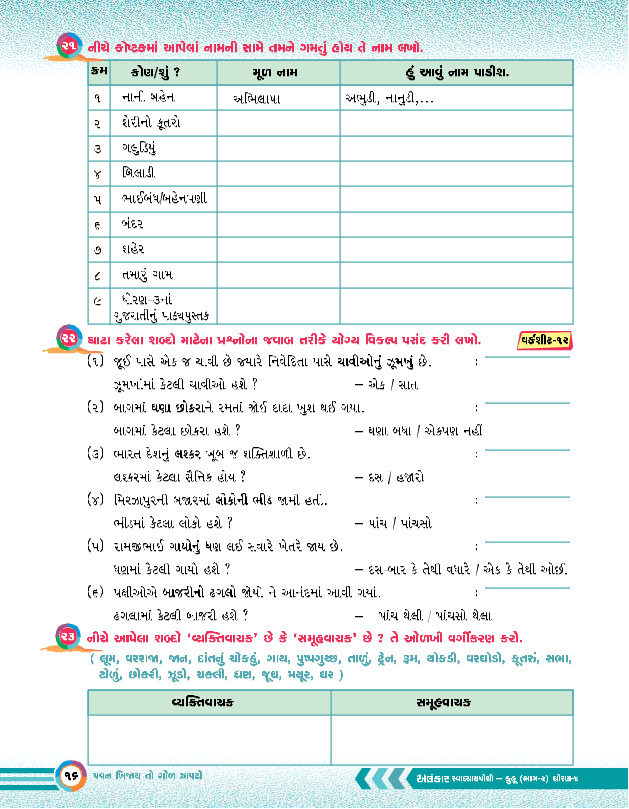 ૨૧ નીચે કોષ્ટકમાં આપેલાં નામની સામે તમને ગમતું હોય તે નામ લખો.
ક્રમ કોણ/શું ? મૂળ નામ હું આવું નામ પાડીશ.
૧ નાની બહેન અભિલાષા અભુડી, નાનુડી,...
૨ શેરીનો કૂતરો
૩ ગલુડિયું
૪ બિલાડી
૫ ભાઈબંધ/બહેનપણી
૬ બંદર
૭ શહેર
૮ તમારું ગામ
૯ ધોરણ-૩નાં
ગુજરાતીનું પાઠ્યપુસ્તક
૨૨ ઘાટા કરેલા શબ્દો માટેના પ્રશ્નોના જવાબ તરીકે યોગ્ય વિકલ્પ પસંદ કરી લખો. વર્કશીટ-૧૨
(૧) જૂઈ પાસે એક જ ચાવી છે જ્યારે નિવેદિતા પાસે ચાવીઓનું ઝૂમખું છે. :
ઝૂમખાંમાં કેટલી ચાવીઓ હશે ? – એક / સાત
(૨) બાગમાં ઘણા છોકરાને રમતાં જોઈ દાદા ખુશ થઈ ગયા. :
બાગમાં કેટલા છોકરા હશે ? – ઘણા બધા / એકપણ નહીં
(૩) ભારત દેશનું લશ્કર ખૂબ જ શક્તિશાળી છે. :
લશ્કરમાં કેટલા સૈનિક હોય ? – દસ / હજારો
(૪) મિરઝાપુરની બજારમાં લોકોની ભીડ જામી હતી. :
ભીડમાં કેટલા લોકો હશે ? – પાંચ / પાંચસો
(૫) રામજીભાઈ ગાયોનું ધણ લઈ સવારે ખેતરે જાય છે. :
ધણમાં કેટલી ગાયો હશે ? – દસ-બાર કે તેથી વધારે / એક કે તેથી ઓછી.
(૬) પક્ષીઓએ બાજરીનો ઢગલો જોયો ને આનંદમાં આવી ગયાં. :
ઢગલામાં કેટલી બાજરી હશે ? – પાંચ થેલી / પાંચસો થેલા
૨૩ નીચે આપેલા શબ્દો ‘વ્યક્તિવાચક’ છે કે ‘સમૂહવાચક’ છે ? તે ઓળખી વર્ગીકરણ કરો.
( લૂમ, વરરાજા, જાન, દાંતનું ચોકઠું, ગાય, પુષ્પગુચ્છ, તાળું, ટ્રેન, રૂમ, ચોકડી, વરઘોડો, કૂતરું, સભા,
ટોળું, છોકરી, ઝૂડો, ચકલી, ધણ, જૂથ, મયૂર, ઘર )
વ્યક્તિવાચક સમૂહવાચક
૧૬ પવન ખિજાય તો ગોળ ઝાપટો અલંકાર સ્વાધ્યાયપોથી – કુહૂ (ભાગ-૨) ધોરણ-૪